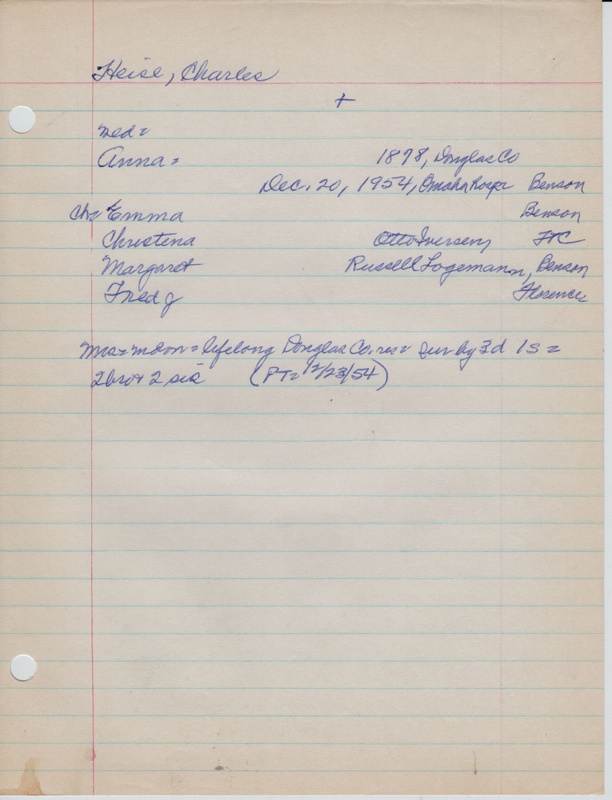 Heise, Charles
+
med =
Anna = 1878, Douglas Co
Dec. 20, 1954, Omaha Hosp Benson
Ch= Emma Benson
Christena Otto Iversen, FtC
Margaret Russell Logemann, Benson
Fred J Florence
Mrs = mdon = lifelong Douglas Co. res = sur by 3d 1s =
2bro + 2 sis (PT = 12/23/54)